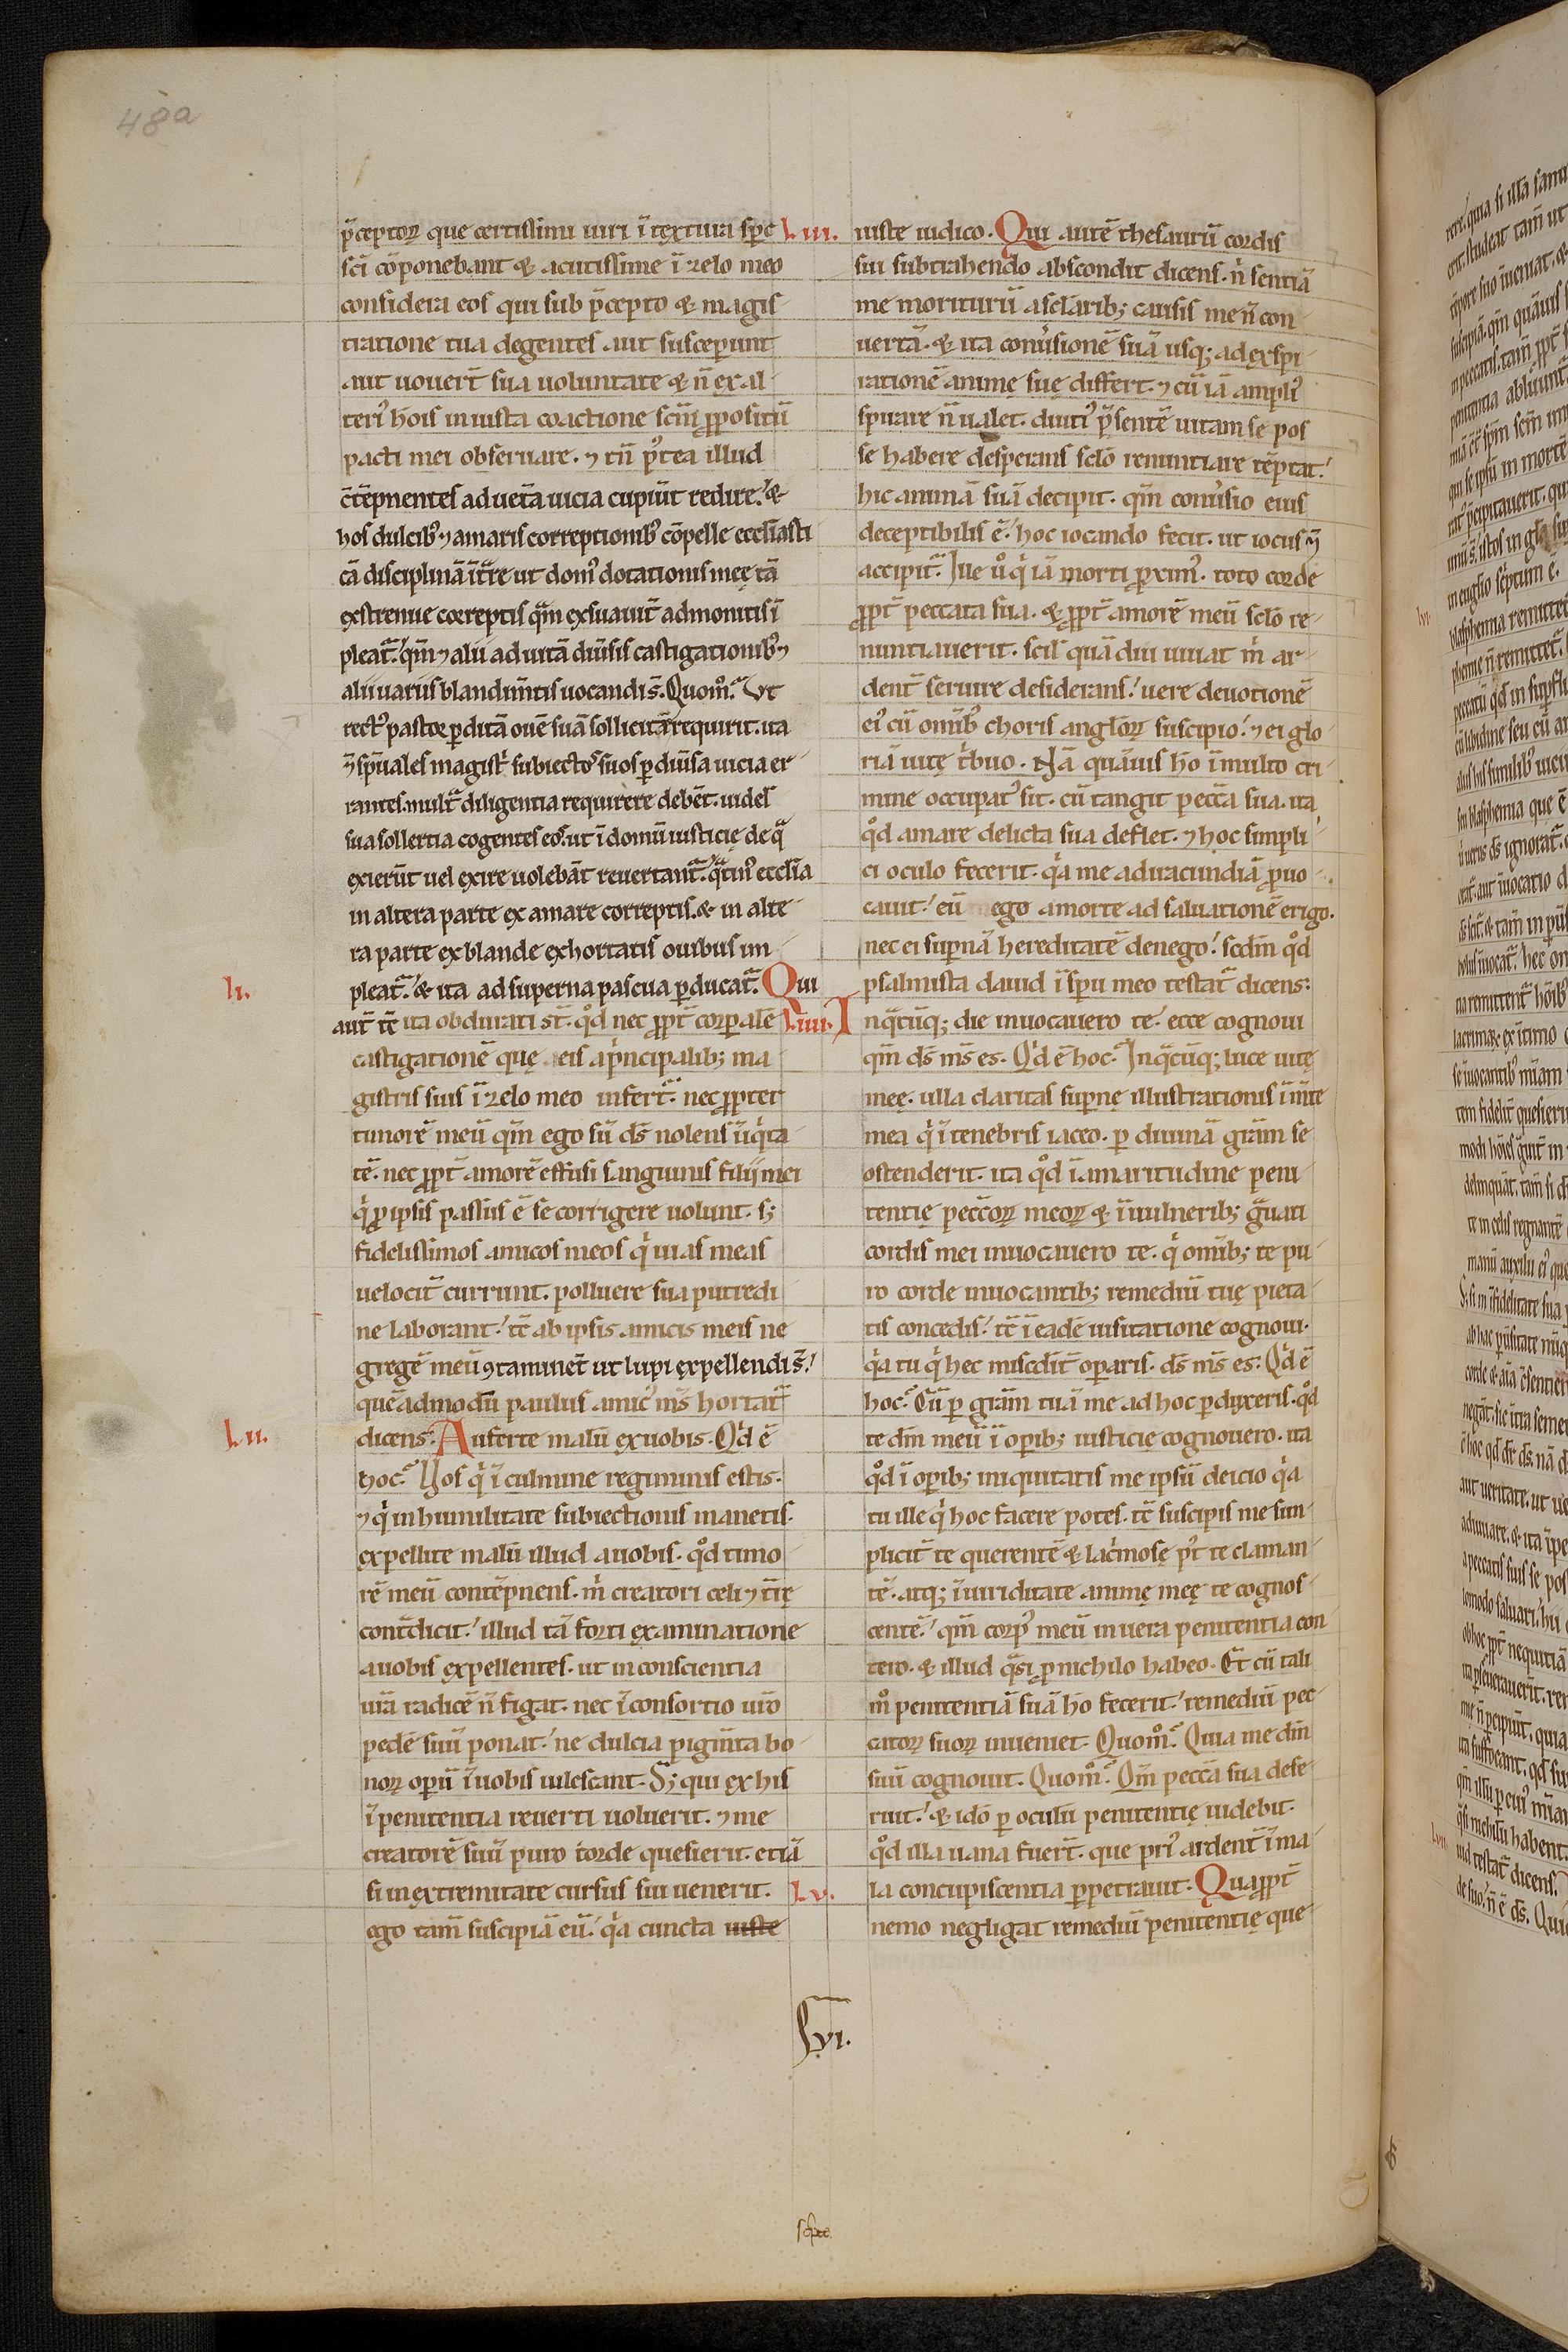 48a
p̄ceptoꝝ que certissimi uiri ī textura spēc
sc̄i cōponebant & acutissime ī zelo meo
considera eos qui sub p̄cepto & magis
tratione tua degentes aut susceperunt
aut uouerīt sua uoluntate & n̄ ex al
teri᾽ hoīs iniusta coactione sc̄m ꝓpositū
pacti mei obseruare. ⁊ tn̄ p᾽tea illud
c̄tēpnentes ad uetā uicia cupiūt redire. &
hos dulcib᾽ ⁊ amaris correptionib᾽ cōpelle eccl̄iasti
cā disciplinā īt̄re ut dom᾽ dotationis meę tā
ex strenue correptis q̄m ex suauit̄ admonitis ī
pleat̄. qm̄ ⁊ alii ad uitā diūsis castigationib᾽ ⁊
alii uariis blandim̄tis uocandi s̄. Quom̊. Vt
rect᾽ pastor ꝑditā ouē suā sollicitā requirit. ita
⁊ sp̄uales magist̄ subiecto᾽ suos ꝑ diūsa uicia er
rantes. mult̄ diligentia requirere debēt. uidel
sua sollertia cogentes eos. ut ī domū iusticię de q̄
exierūt uel exire uolebāt reuertant̄. q̄tin᾽ eccl̄ia
in altera parte ex amare correptis. & in alte
ra parte ex blande exhortatis ouibus im
li. pleat̄. & ita ad superna pascua ꝑducat̄. Qui
aut̄ tē ita obdurati st̄. qd̊ nec ꝓpt̄ corꝑalē
castigationē que eis a p̄ncipalib; ma
gistris suis ī zelo meo infert̄. nec ꝓpter
timorē meū qm̄ ego sū ds̄ nolens īiq̇ta
tē. nec ꝓpt̄ amorē effusi sanguinis filii mei
q̇ ꝓ ipsis passus ē se corrigere uolunt. s;
fidelissimos amicos meos q̇ uias meas
uelocit̄ currunt. polluere sua putredi
ne laborant. tē ab ipsis amicis meis ne
gregē meū ꝯtaminet̄ ut lupi expellendi s̄.
quēadmodū paulus amic᾽ ms̄ hortat̄
l.ii. dicens. Auferte malū ex uobis. Qḋ ē
hoc. Vos q̇ ī culmine regiminis estis.
⁊ q̇ in humilitate subiectionis manetis.
expellite malū illud a uobis. qd̊ timo
rē meū contēpnens. ṁ creatori celi ⁊ tr̄ę
cont̄dicit. illud tā forti examinatione
a uobis expellentes. ut in conscientia
ur̄a radicē n̄ figat. nec ī consortio ur̄o
pedē suū ponat. ne dulcia pigm̄ta bo
noꝝ operū ī uobis uilescant. S; qui ex his
ī penitentia reuerti uoluerit. ⁊ me
creatorē suū puro corde quesierit. etiā
si in extremitate cursus sui uenerit.
ego tam̄ suscipiā eū. q̇a cuncta iuste
l.iii. iuste iudico. Qui autē thesaurū cordis
sui subtrahendo abscondit dicens. n̄ sentiā
me moriturū a sc̄larib; causis me n̄ con
uertā. & ita conūsionē suā usq; ad exspi
rationē animę suę differt. ⁊ cū iā ampli᾽
spirare n̄ ualet. diuti᾽ p̄sentē uitam se pos
se habere desperans sc̄lo renuntiare tēptat.
hic animā suā decipit. qm̄ conūsio eius
deceptibilis ē. hoc iocando fecit. ut iocus ⁊
accipit̄. Ille u̇o q̇ iā morti ꝓxim᾽. toto corde
ꝓpt̄ peccata sua. & ꝓpt̄ amorē meū sc̄lo re
nuntiauerit. scil quā diu uiuat ṁ ar
dent̄ seruire desiderans. uere deuotionē
ei᾽ cū omīb᾽ choris angl̄oꝝ suscipio. ⁊ ei glo
riā uitę t̄buo. Nā quāuis hō ī multo cri
mine occupat᾽ sit. cū tangit pecc̄a sua. ita
qd̊ amare delicta sua deflet. ⁊ hoc simpli
ci oculo fecerit. q̇a me ad iracundiā ꝓuo
cauit. eū ego a morte ad saluationē erigo.
nec ei supnā hereditatē denego. scdm̄ qd̊
psalmista dauid ī sp̄u meo testat̄ dicens:
l.iiii. Inq̄cūq; die inuocauero te. ecce cognoui
qm̄ ds̄ ms̄ es. Qḋ ē hoc. Inq̄cūq; luce uitę
meę. ulla claritas supnę illustrationis ī m̄te
mea q̇ ī tenebris iaceo. ꝑ diuinā grām se
ostenderit. ita qd̊ ī amaritudine peni
tentię pecc̄oꝝ meoꝝ & ī uulnerib; g̊uati
cordis mei inuocauero te. q̇ omīb; te pu
ro corde inuocantib; remediū tuę pieta
tis concedis. tē ī eadē uisitatione cognoui.
q̇a tu q̇ hec mis̄cdit̄ oꝑaris. ds̄ ms̄ es: Qḋ ē
hoc. Cū ꝑ grām tuā me ad hoc ꝑduxeris. qd̊
te dm̄ meū ī oꝑib; iusticię cognouero. ita
qd̊ ī oꝑib; iniquitatis me ipsū deicio q̇a
tu ille q̇ hoc facere potes. tē suscipis me sim
plicit̄ te querentē & lac̄mose p᾽t te claman
tē. atq; ī uiriditate animę meę te cognos
centē. qm̄ corp᾽ meū in uera penitentia con
tero. & illud q̄si ꝓ nichilo habeo. Et cū tali
m̊ penitentiā suā hō fecerit. remediū pec
catoꝝ suoꝝ inueniet. Quom̊. Quia me dm̄
suū cognouit. Quom̊. Qm̄ pecc̄a sua dese
ruit. & ido̅ ꝑ oculū penitentię uidebit.
qd̊ illa uana fuerīt. que pri᾽ ardent̄ ī ma
la concupiscentia ꝑpetrauit. Quaꝓpt̄
l.v. nemo negligat remediū penitentię que
lvi.